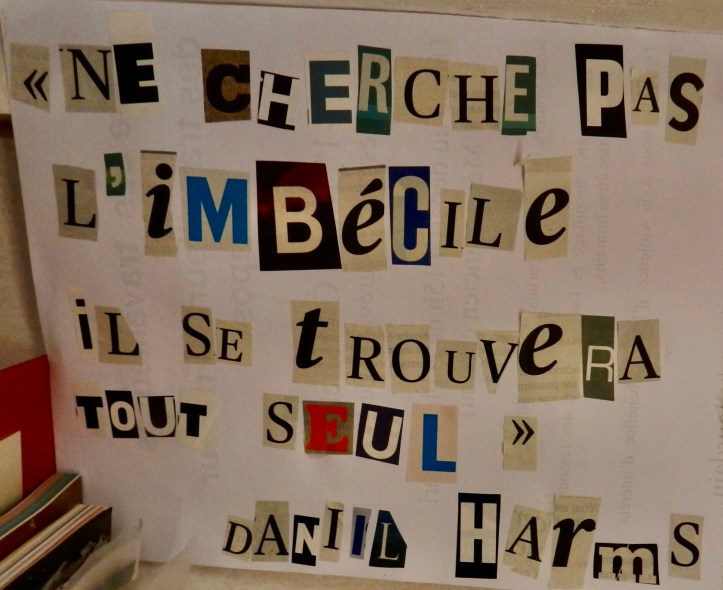 « NE CHERCHE PAS
L'iMBéCILe
iL SE tROUVeRA
TOUT SEUL »
DANIIL HArmS